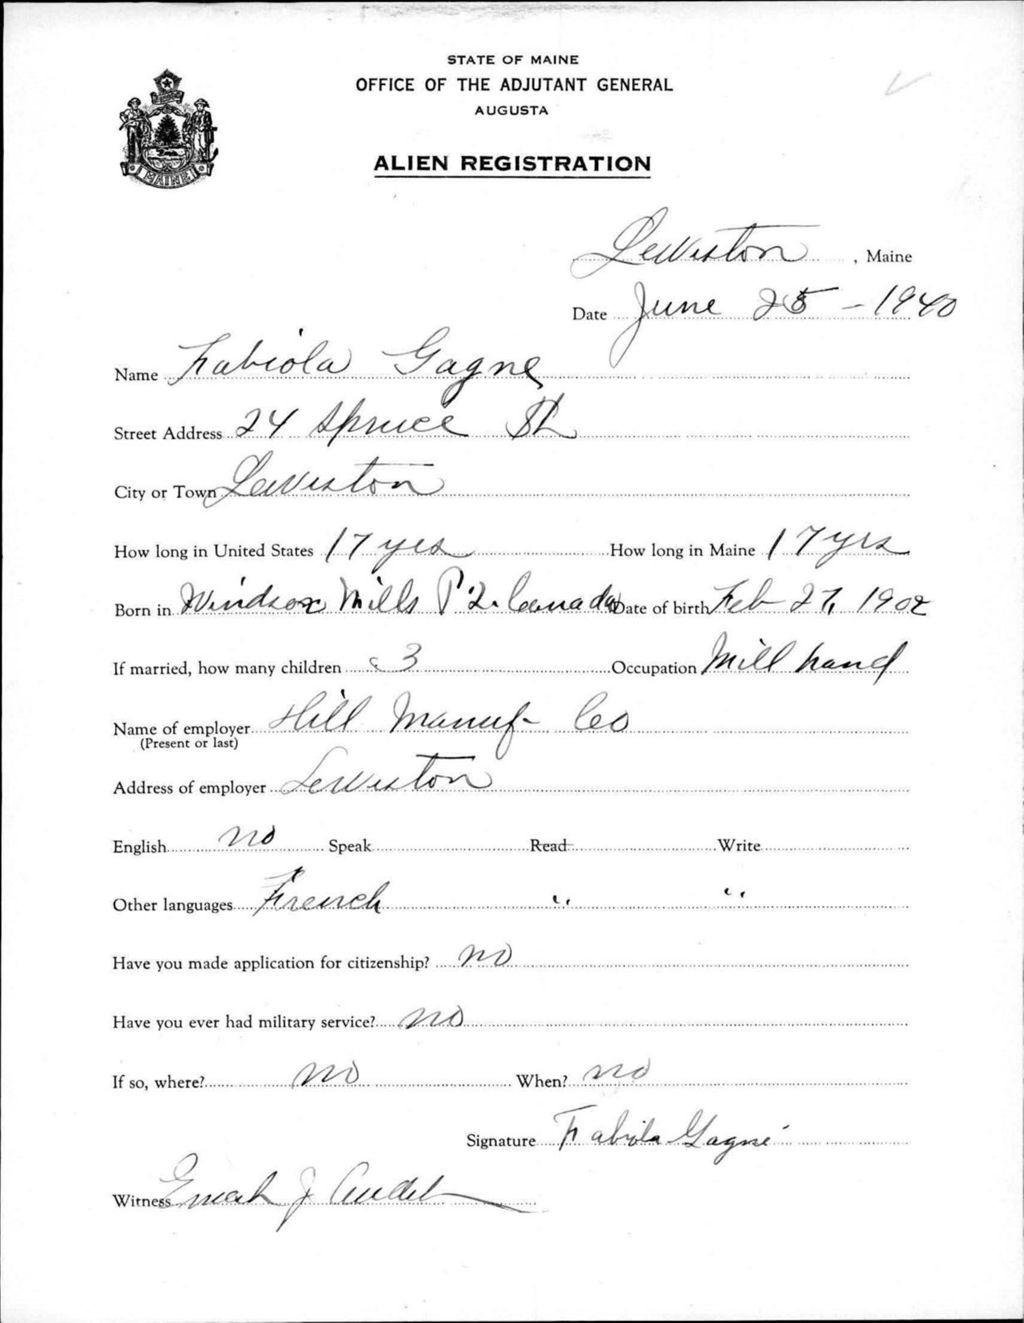 STATE OF MAINE
OFFICE OF THE ADJUTANT GENERAL
AUGUSTA
MAINE
ALIEN REGISTRATION
Lewiston, Maine
Date June 25 - 1940
Name Fabiola Gagne
Street Address 24 Spruce St
City or Town Lewiston
How long in United States 17 yrs How long in Maine 17 yrs
Born in Windsor Mills P.Q. Canada Date of birth Feb 27, 1902
If married, how many children 3 Occupation Mill hand
Name of employer Hill Manuf- Co
(Present or last)
Address of employer Lewiston
English no Speak Read Write
Other languages French " "
Have you made application for citizenship? no
Have you ever had military service? no
If so, where? no When? no
Signature Fabiola Gagné
Witness J